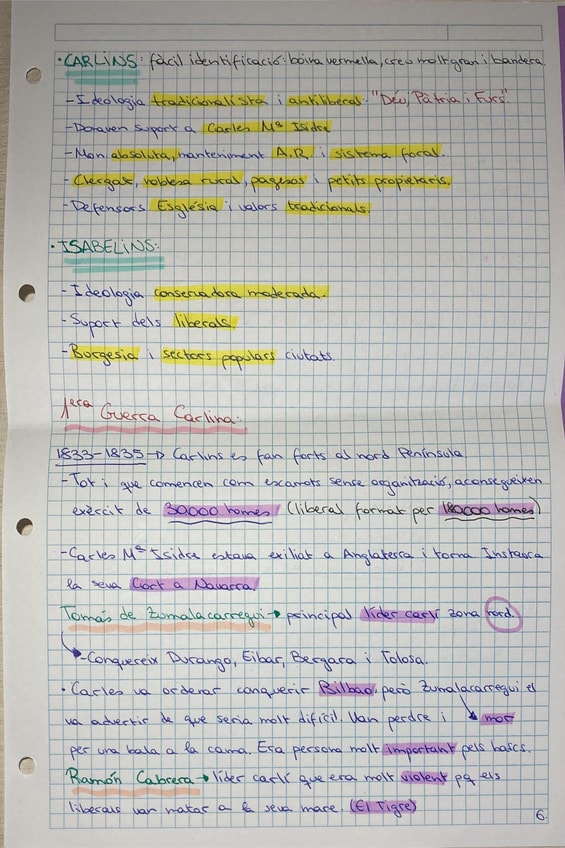 · CARLINS: fàcil identificació: boina vermella, creu molt gran i bandera
- Ideologia tradicionalista i antiliberal. "Déu, Pàtria i Furs".
- Donaven suport a Carles Mª Isidre
- Mon absoluta, manteniment A.R. i sistema foral.
- Clergat, noblesa rural, pagesos i petits propietaris.
- Defensors Església i valors tradicionals.
· ISABELINS:
- Ideologia conservadora moderada.
- Suport dels liberals.
- Burgesia i sectors populars ciutats.
1era Guerra Carlina:
1833-1835 → Carlins es fan forts al nord Península.
- Tot i que comencen com escamots sense organització, aconsegueixen
exèrcit de 30000 homes (liberal format per 180000 homes)
- Carles Mª Isidre estava exiliat a Anglaterra i torna. Instaura
la seva Cort a Navarra.
Tomás de Zumalacarregui → principal líder carlí zona nord.
→ - Conquereix Durango, Eibar, Bergara i Tolosa.
· Carles va ordenar conquerir Bilbao, però Zumalacarregui el
va advertir de que seria molt difícil. Van perdre i → mor
per una bala a la cama. Era persona molt important pels bascs.
Ramón Cabrera → líder carlí que era molt violent pq els
liberals van matar a la seva mare. (El Tigre)
6.